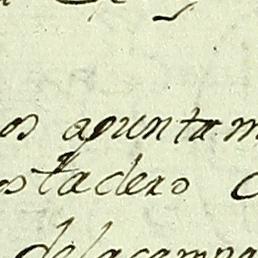 os apuntam
ostadero
delacampa